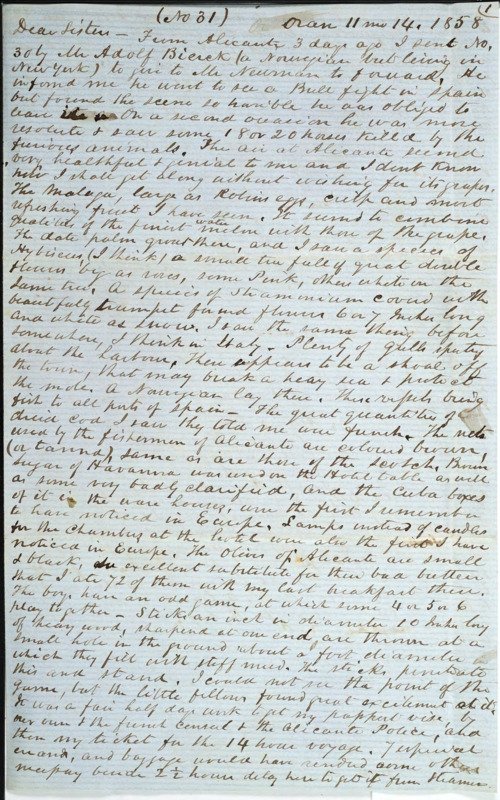 (No 31) Oran 11 mo 14. 1858 (1
Dear Sisters – From Alicante 3 days ago I sent No,
30 by Mr Adolf Bierck (a Norwegian but living in
New York) to give to Mr Newman to forward. He
informd me he went to see a Bull fight in Spain
but found the scene so horrible he was obliged to
leave On a second occasion he was more
resolute & saw some 18 or 20 horses killed by the
furious animals. The air at Alicante seemd
very healthful & genial to me and I dont know
how I shall get along without wishing for its grapes.
The Malaga, large as Robins eggs, crisp and most
refreshing fruit I have seen. It seemd to combine
qualities of the finest water melon with those of the grape.
The date palm grows there, and I saw a species of
Hybiscus (I think) a small tree full of great double
flowers big as roses, some Pink, others white on the
same tree. A species of Stramonium coverd with
beautifuly trumpet formd flowers 6 or 7 Inches long
and white as snow. I saw the same thing before
somewhere, I think in Italy – Plenty of gulls sporting
about the harbour. There appears to be a shoal off
the town, that may break a heavy sea & protect
the mole. A Norwegian lay there. These vessels bring
fish to all ports of Spain – The great quantities of
dried cod I saw they told me were french. The nets
used by the fishermen of Alicante are coloured brown,
(or tannd), same as are those of the Scotch. Brown
Sugar of Havanna was used on the Hotel table as well
as some very badly clarified, and the Cuba boxes
of it in the ware houses, were the first I remember
to have noticed in Europe. Lamps instead of candles
for the chambers at the hotel were also the first I have
noticed in Europe. The Olives of Alicante are small
& black, an excellent substitute for their bad butter
that I ate 72 of them with my last breakfast there.
The boys have an odd game, at which some 4 or 5 or 6
play together – Sticks an inch in diameter 10 Inches long
of heavy wood, sharpend at one end, are thrown at a
small hole in the ground about a foot diameter
which they fill with stiff mud. The sticks penetrate
this and stand. I could not see the point of the
game, but the little fellows found great excitement at it.
It was a fair half days work to get my passport vised, by
our own & the french consul & the Alicante Police, and
then my ticket for the 14 hours voyage. Imperial
and baggage would have rendered some other
beside 2½ hours delay here to get it from steamer